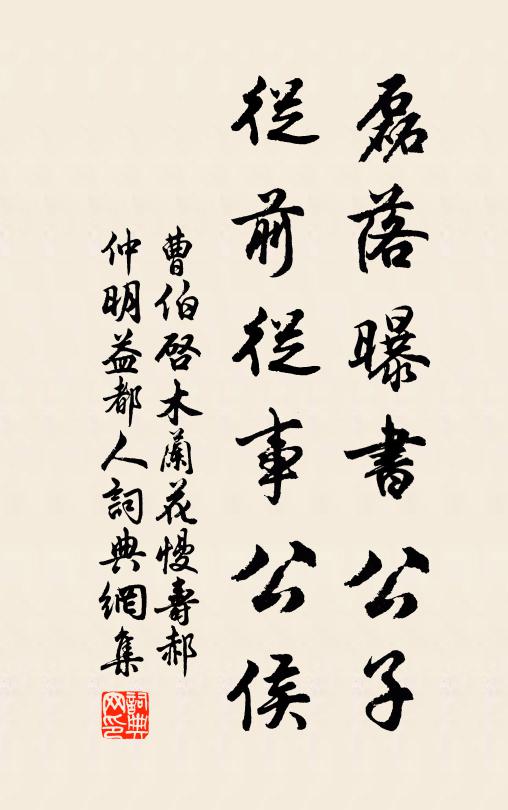 磊落曝書公子
從前從事公侯
曹伯啓木蘭花慢壽郝
仲明益都人詞典網集
詞典
网印